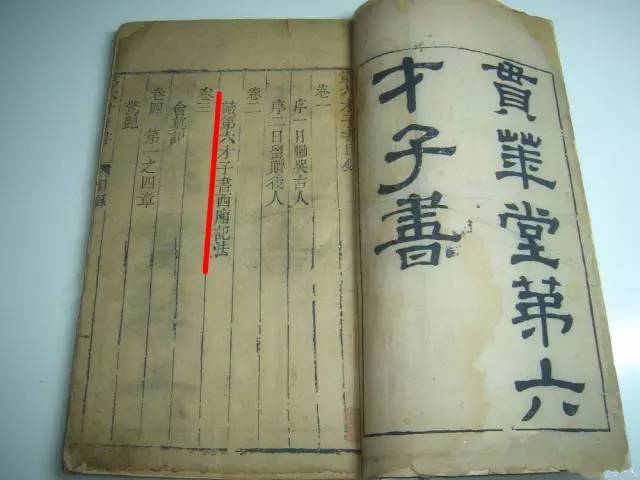 貫華堂第六
才子書
六才子書目錄
卷一
序一曰慟哭古人
序二曰留贈後人
卷二
讀第六才子書西廂記法
卷三
會真記
卷四 第一之四章
驚豔
目錄